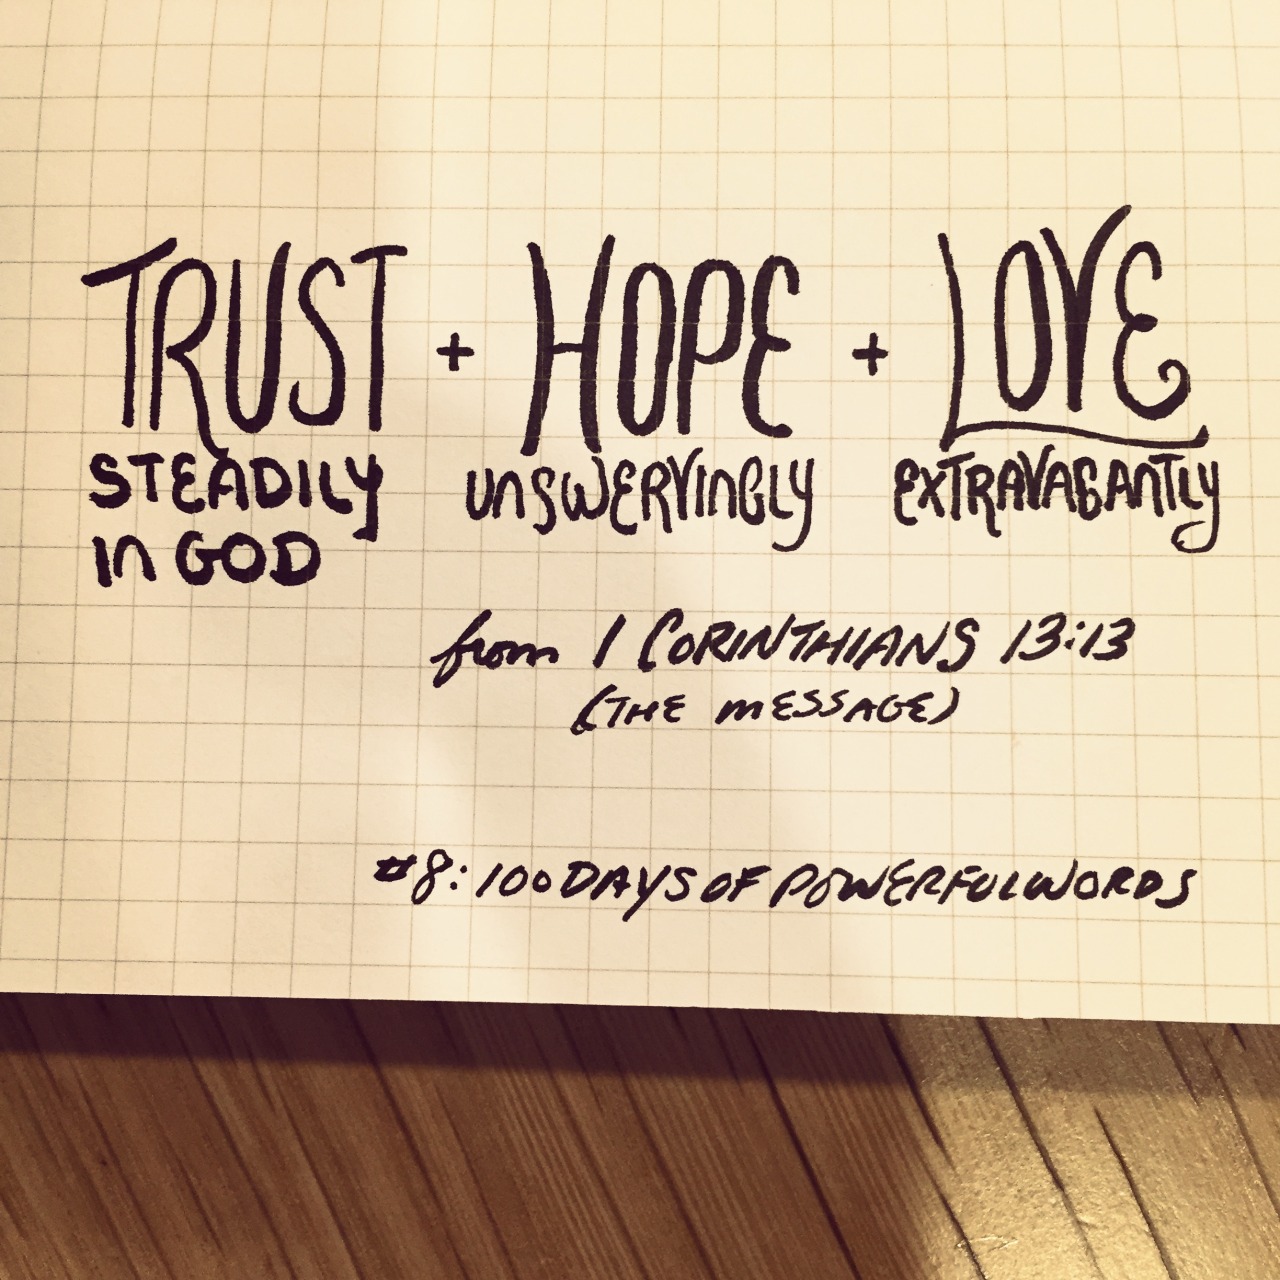 TRUST + HOPE + LOVE
STEADILY UNSWERVINGLY EXTRAVAGANTLY
IN GOD
from 1 CORINTHIANS 13:13
(THE MESSAGE)
#8: 100DAYSOFPOWERFULWORDS